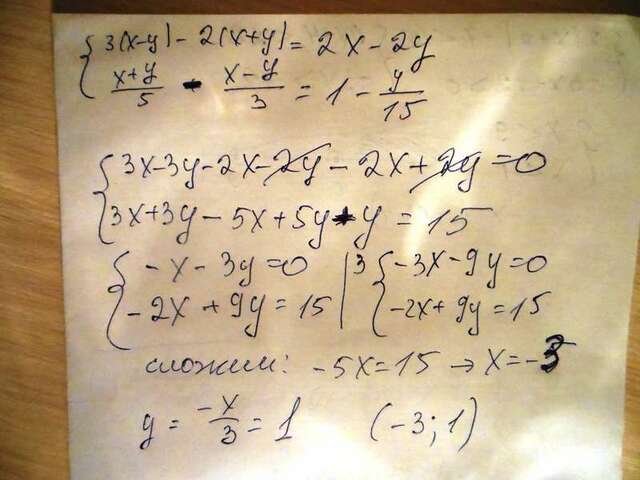 { 3(x-y) - 2(x+y) = 2x - 2y
{ (x+y)/5 - (x-y)/3 = 1 - y/15
{ 3x-3y-2x-2y-2x+2y=0
{ 3x+3y-5x+5y+y=15
{ -x-3y=0 | 3 { -3x-9y=0
{ -2x+9y=15 | { -2x+9y=15
сложим: -5x=15 → x=-3
y = -x/3 = 1 (-3; 1)